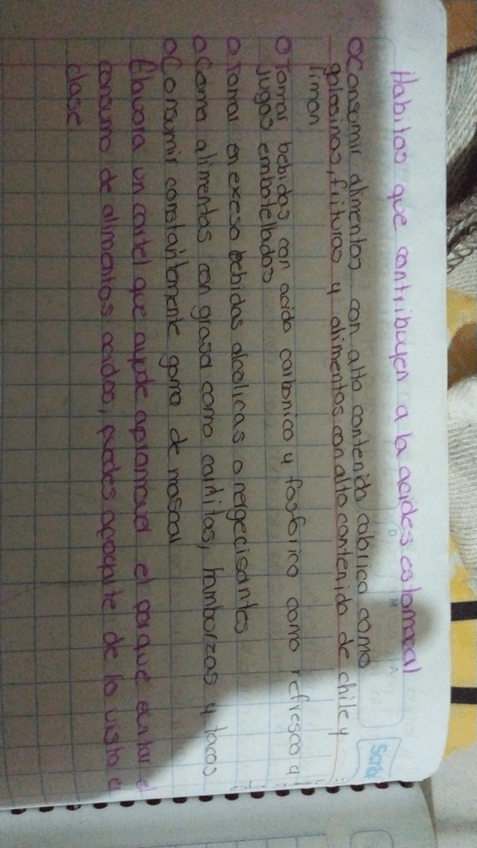 Habitos que contribuyen a la acides estomacal
o Consumir alimentos con alto contenido calorico como
golosinas, frituras y alimentos con alto contenido de chile y
limon
o Tomar bebidas con acido carbonico y fosforico como refresco y
jugos embotellados
o Tomar en exeso bebidas alcolicas o nergecisantes
o Coma alimentos con grasa como carnitas, hamborzas y tacos
o Consumir constantemente goma de mascar
Elavora un cartel que ayude apromover el porque evitar el
consumo de alimentos acidos, puedes apoyarte de lo visto en
clase
Scribe